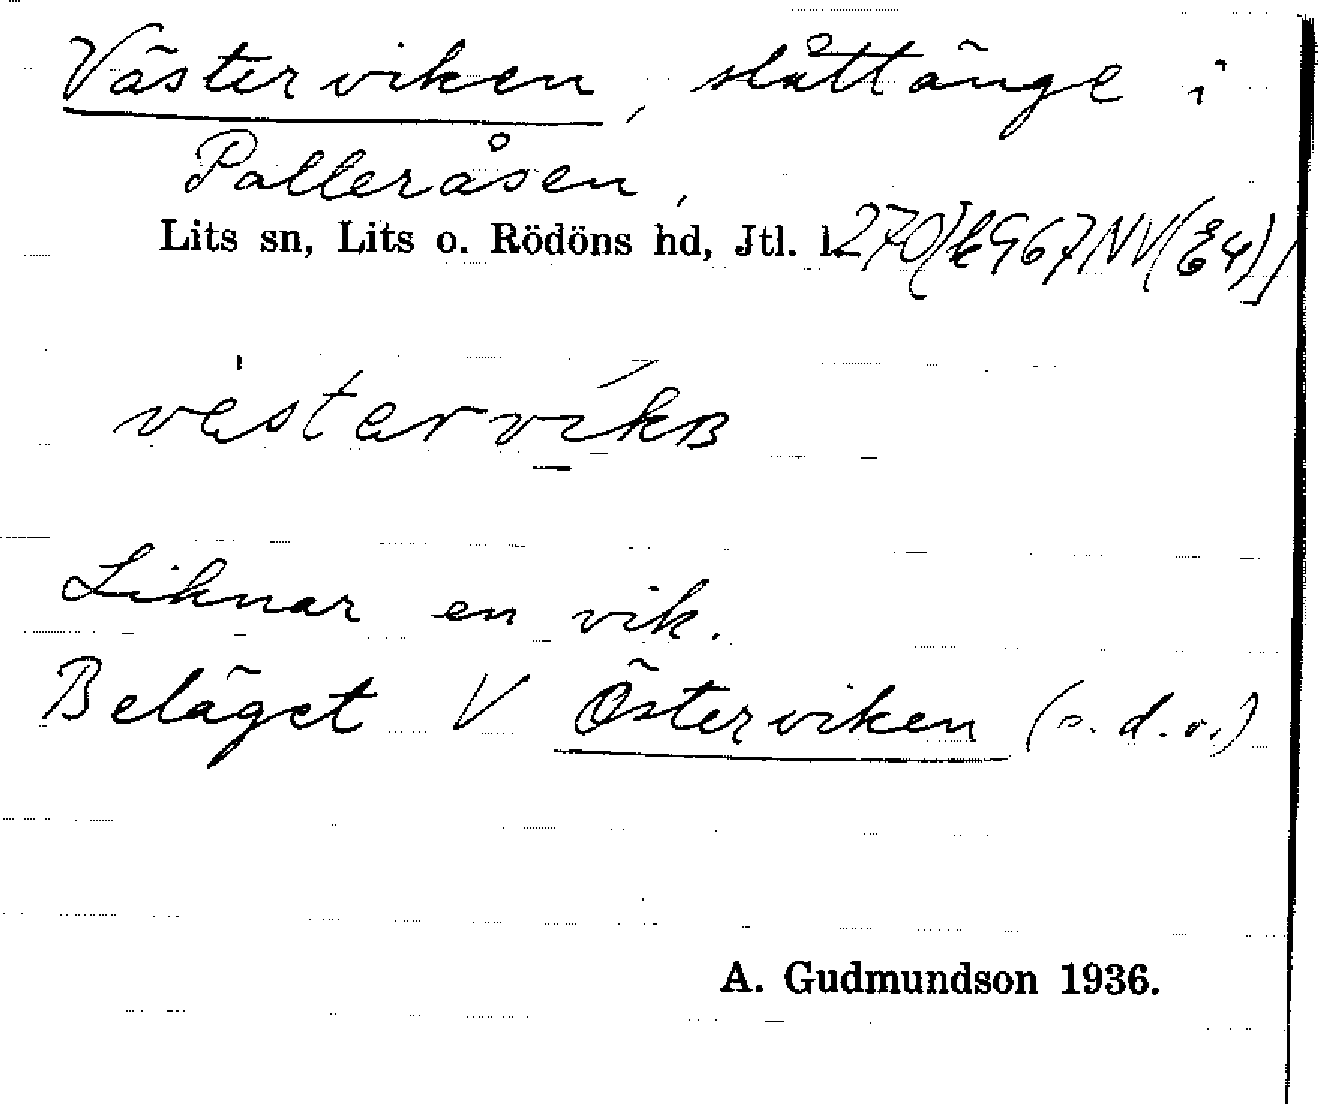 Västerviken, slåttänge i
Palleråsen,
Lits sn, Lits o. Rödöns hd, Jtl. l.
Liknar en vik.
Beläget V Österviken (s. d. o.)
A. Gudmundson 1936.